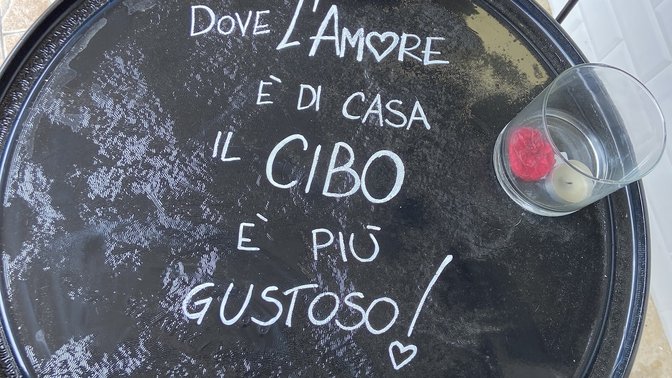 DOVE L'AMORE
È DI CASA
IL CIBO
È PIÙ
GUSTOSO!